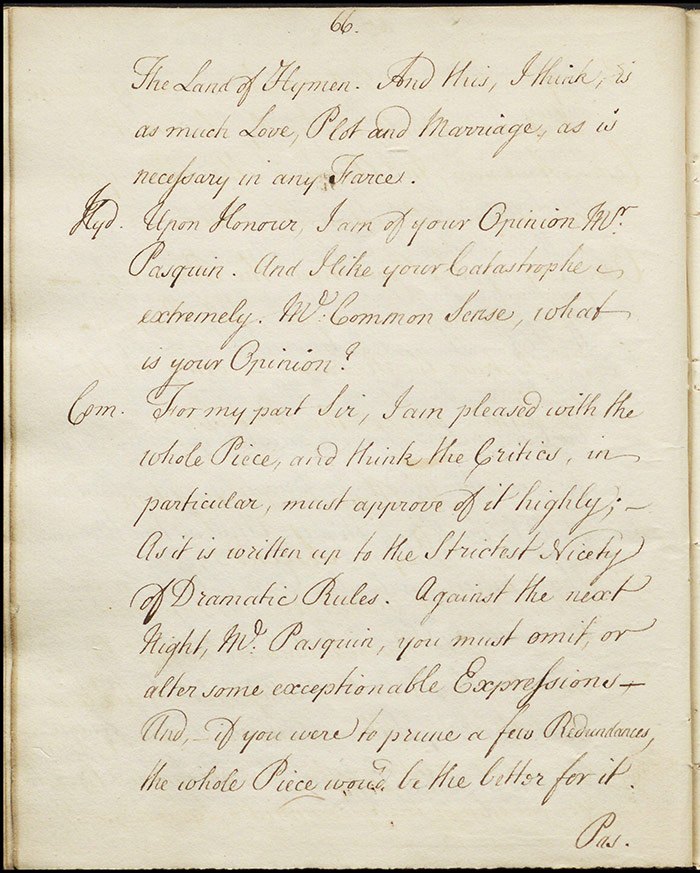 66.
The Land of Hymen. And this, I think, is
as much Love, Plot and Marriage, as is
necessary in any Farce.
Hyd. Upon Honour, I am of your Opinion Mr.
Pasquin. And I like your Catastrophe
extremely. Mr. Common Sense, what
is your Opinion?
Com. For my part Sir, I am pleased with the
whole Piece, and think the Critics, in
particular, must approve of it highly; –
As it is written up to the Strictest Nicety
of Dramatic Rules. Against the next
Night, Mr. Pasquin, you must omit, or
alter some exceptionable Expressions –
And, – if you were to prune a few Redundances,
the whole Piece wou'd be the better for it.
Pas.